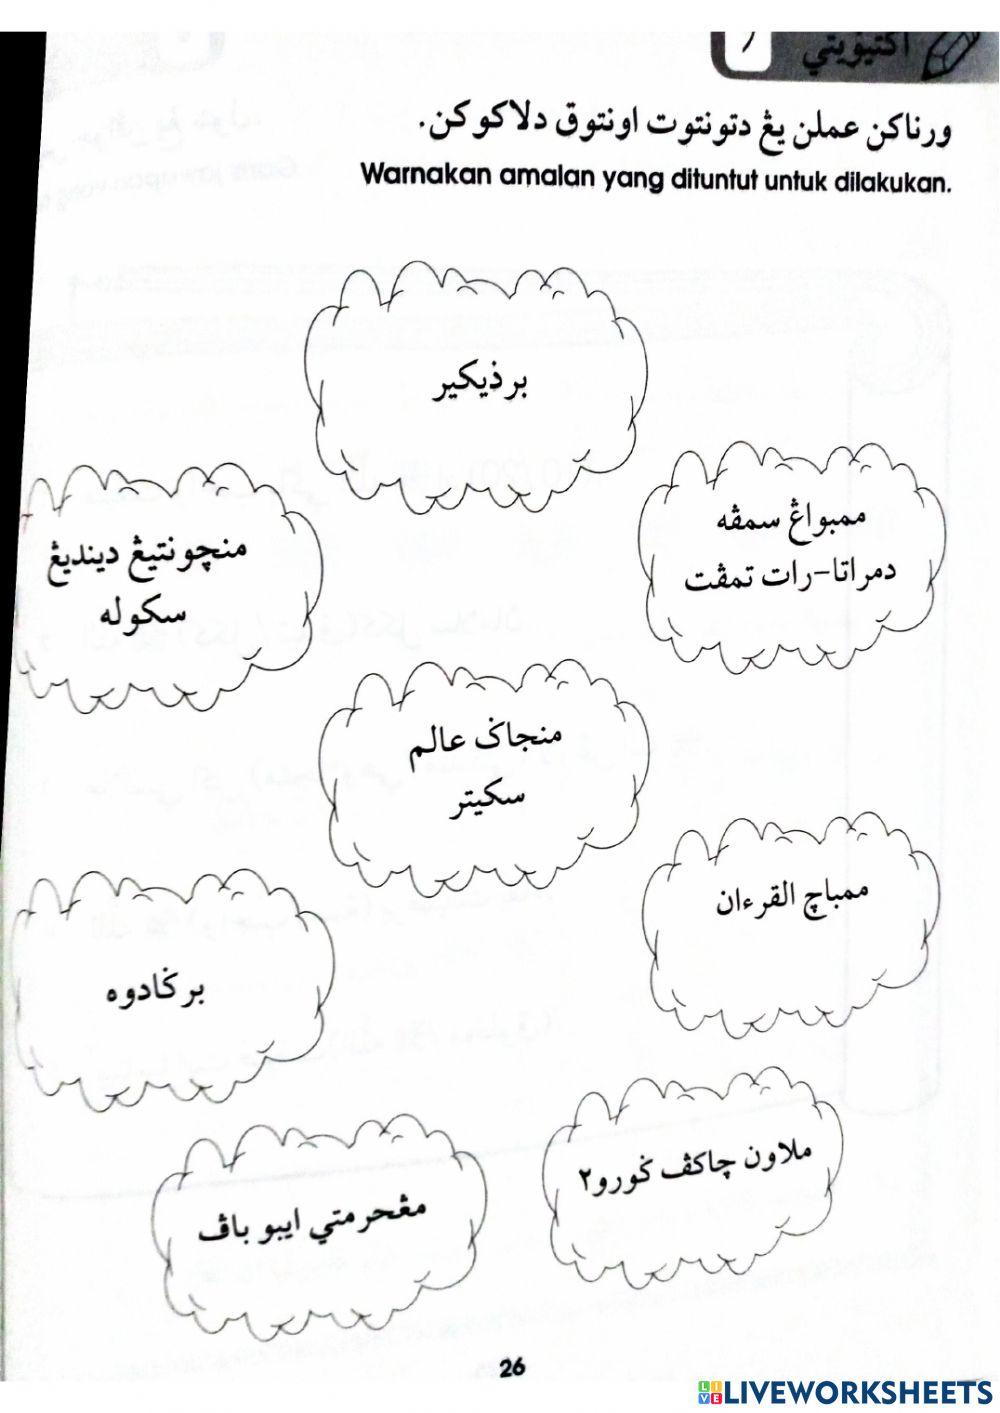 اکتيۏيتي
ورناکن عملن يڠ دتونتوت اونتوق دلاکوکن.
Warnakan amalan yang dituntut untuk dilakukan.
برذيکير
ممبواڠ سمڤه
دمراتا-رات تمڤت
منچونتيڠ دينديڠ
سکوله
منجاݢ عالم
سکيتر
ممباچ القرءان
برݢادوه
ملاون چاکڤ ݢورو٢
مڠحرمتي ايبو باڤ
26
LIVEWORKSHEETS